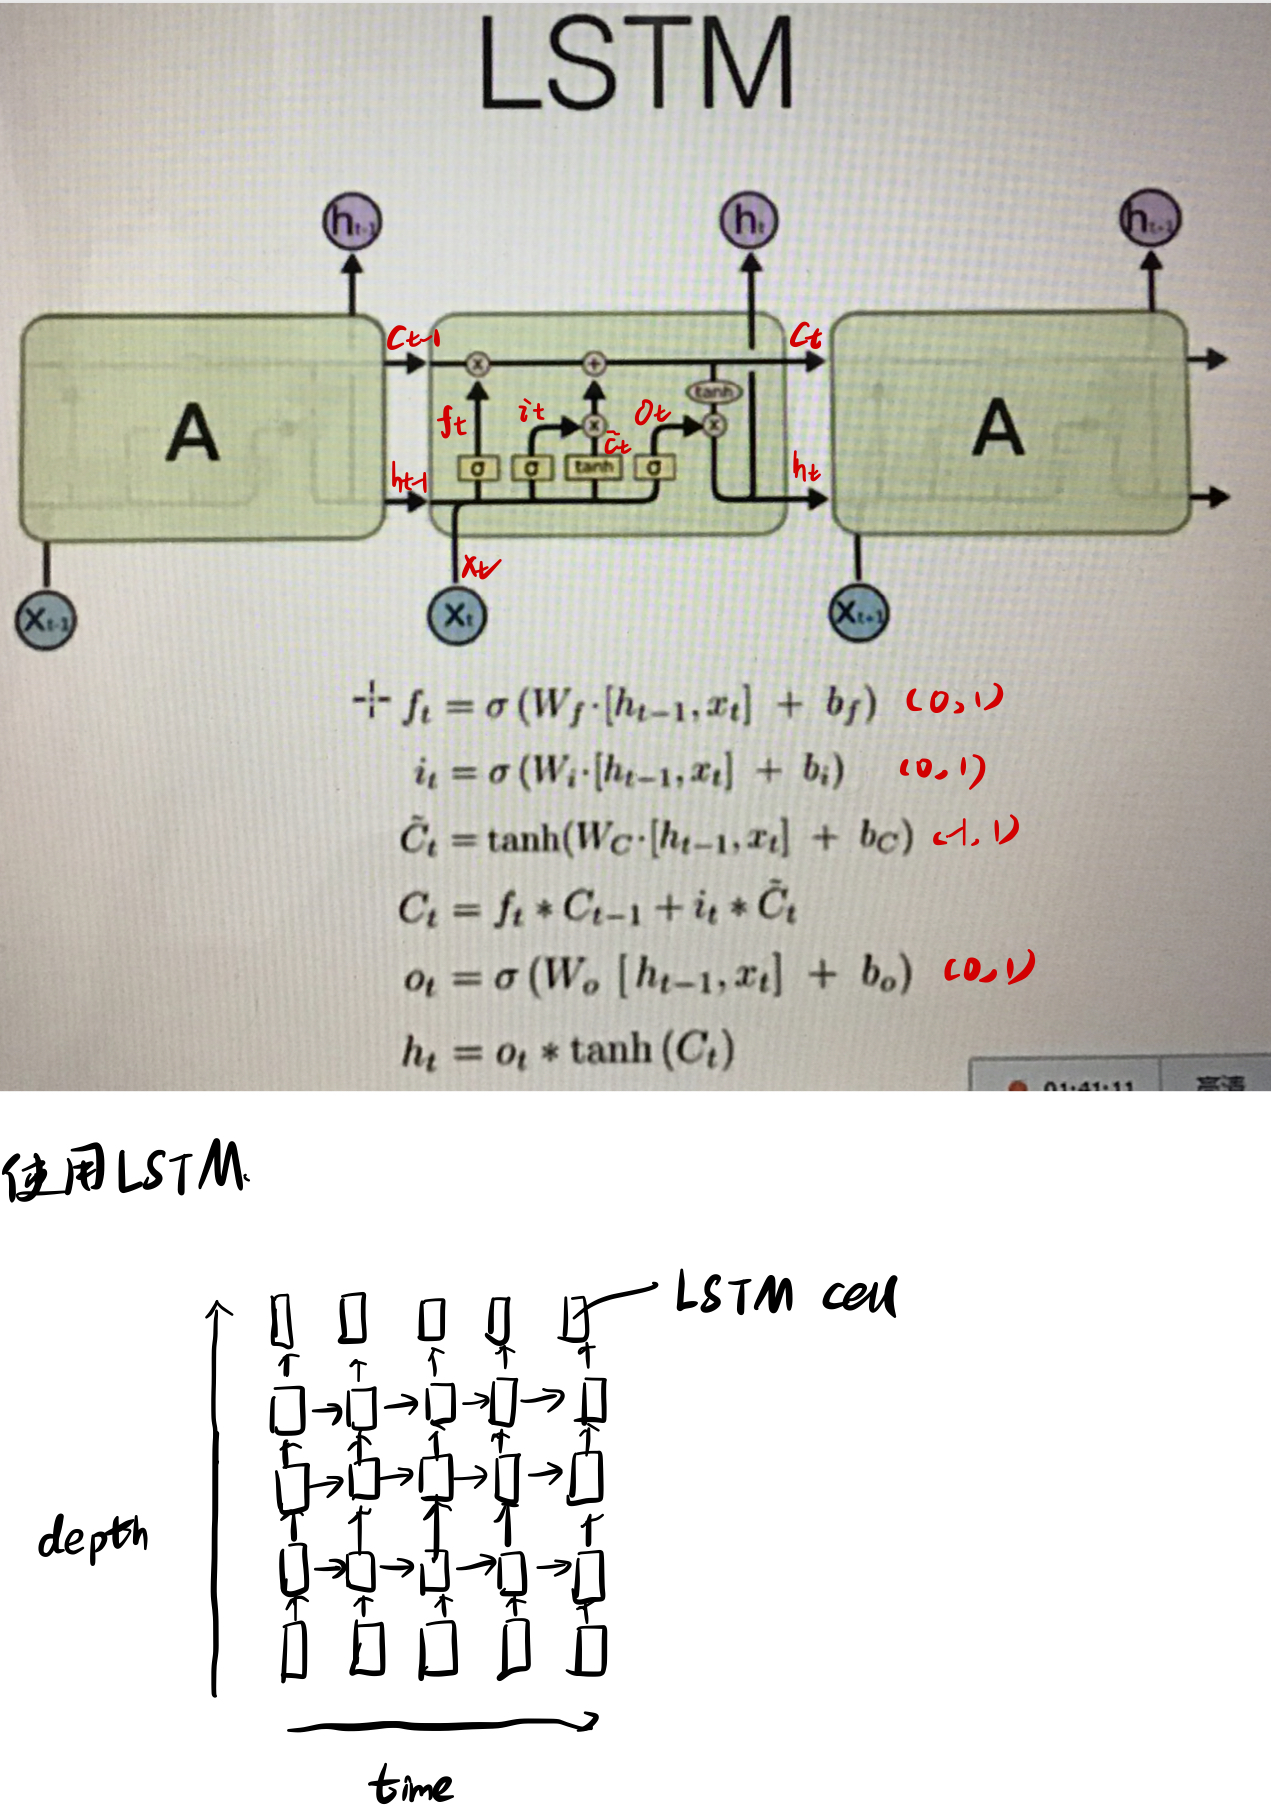 LSTM
h_{t-1} h_t h_{t+1}
C_{t-1} C_t
f_t i_t \tilde{C}_t O_t tanh
A A
σ σ tanh σ
h_{t-1} h_t
x_t
X_{t-1} X_t X_{t+1}
f_t = σ(W_f·[h_{t-1}, x_t] + b_f) (0,1)
i_t = σ(W_i·[h_{t-1}, x_t] + b_i) (0,1)
\tilde{C}_t = tanh(W_C·[h_{t-1}, x_t] + b_C) (-1,1)
C_t = f_t * C_{t-1} + i_t * \tilde{C}_t
o_t = σ(W_o [h_{t-1}, x_t] + b_o) (0,1)
h_t = o_t * tanh(C_t)
01:41:11 高清
使用LSTM.
LSTM cell
depth
time